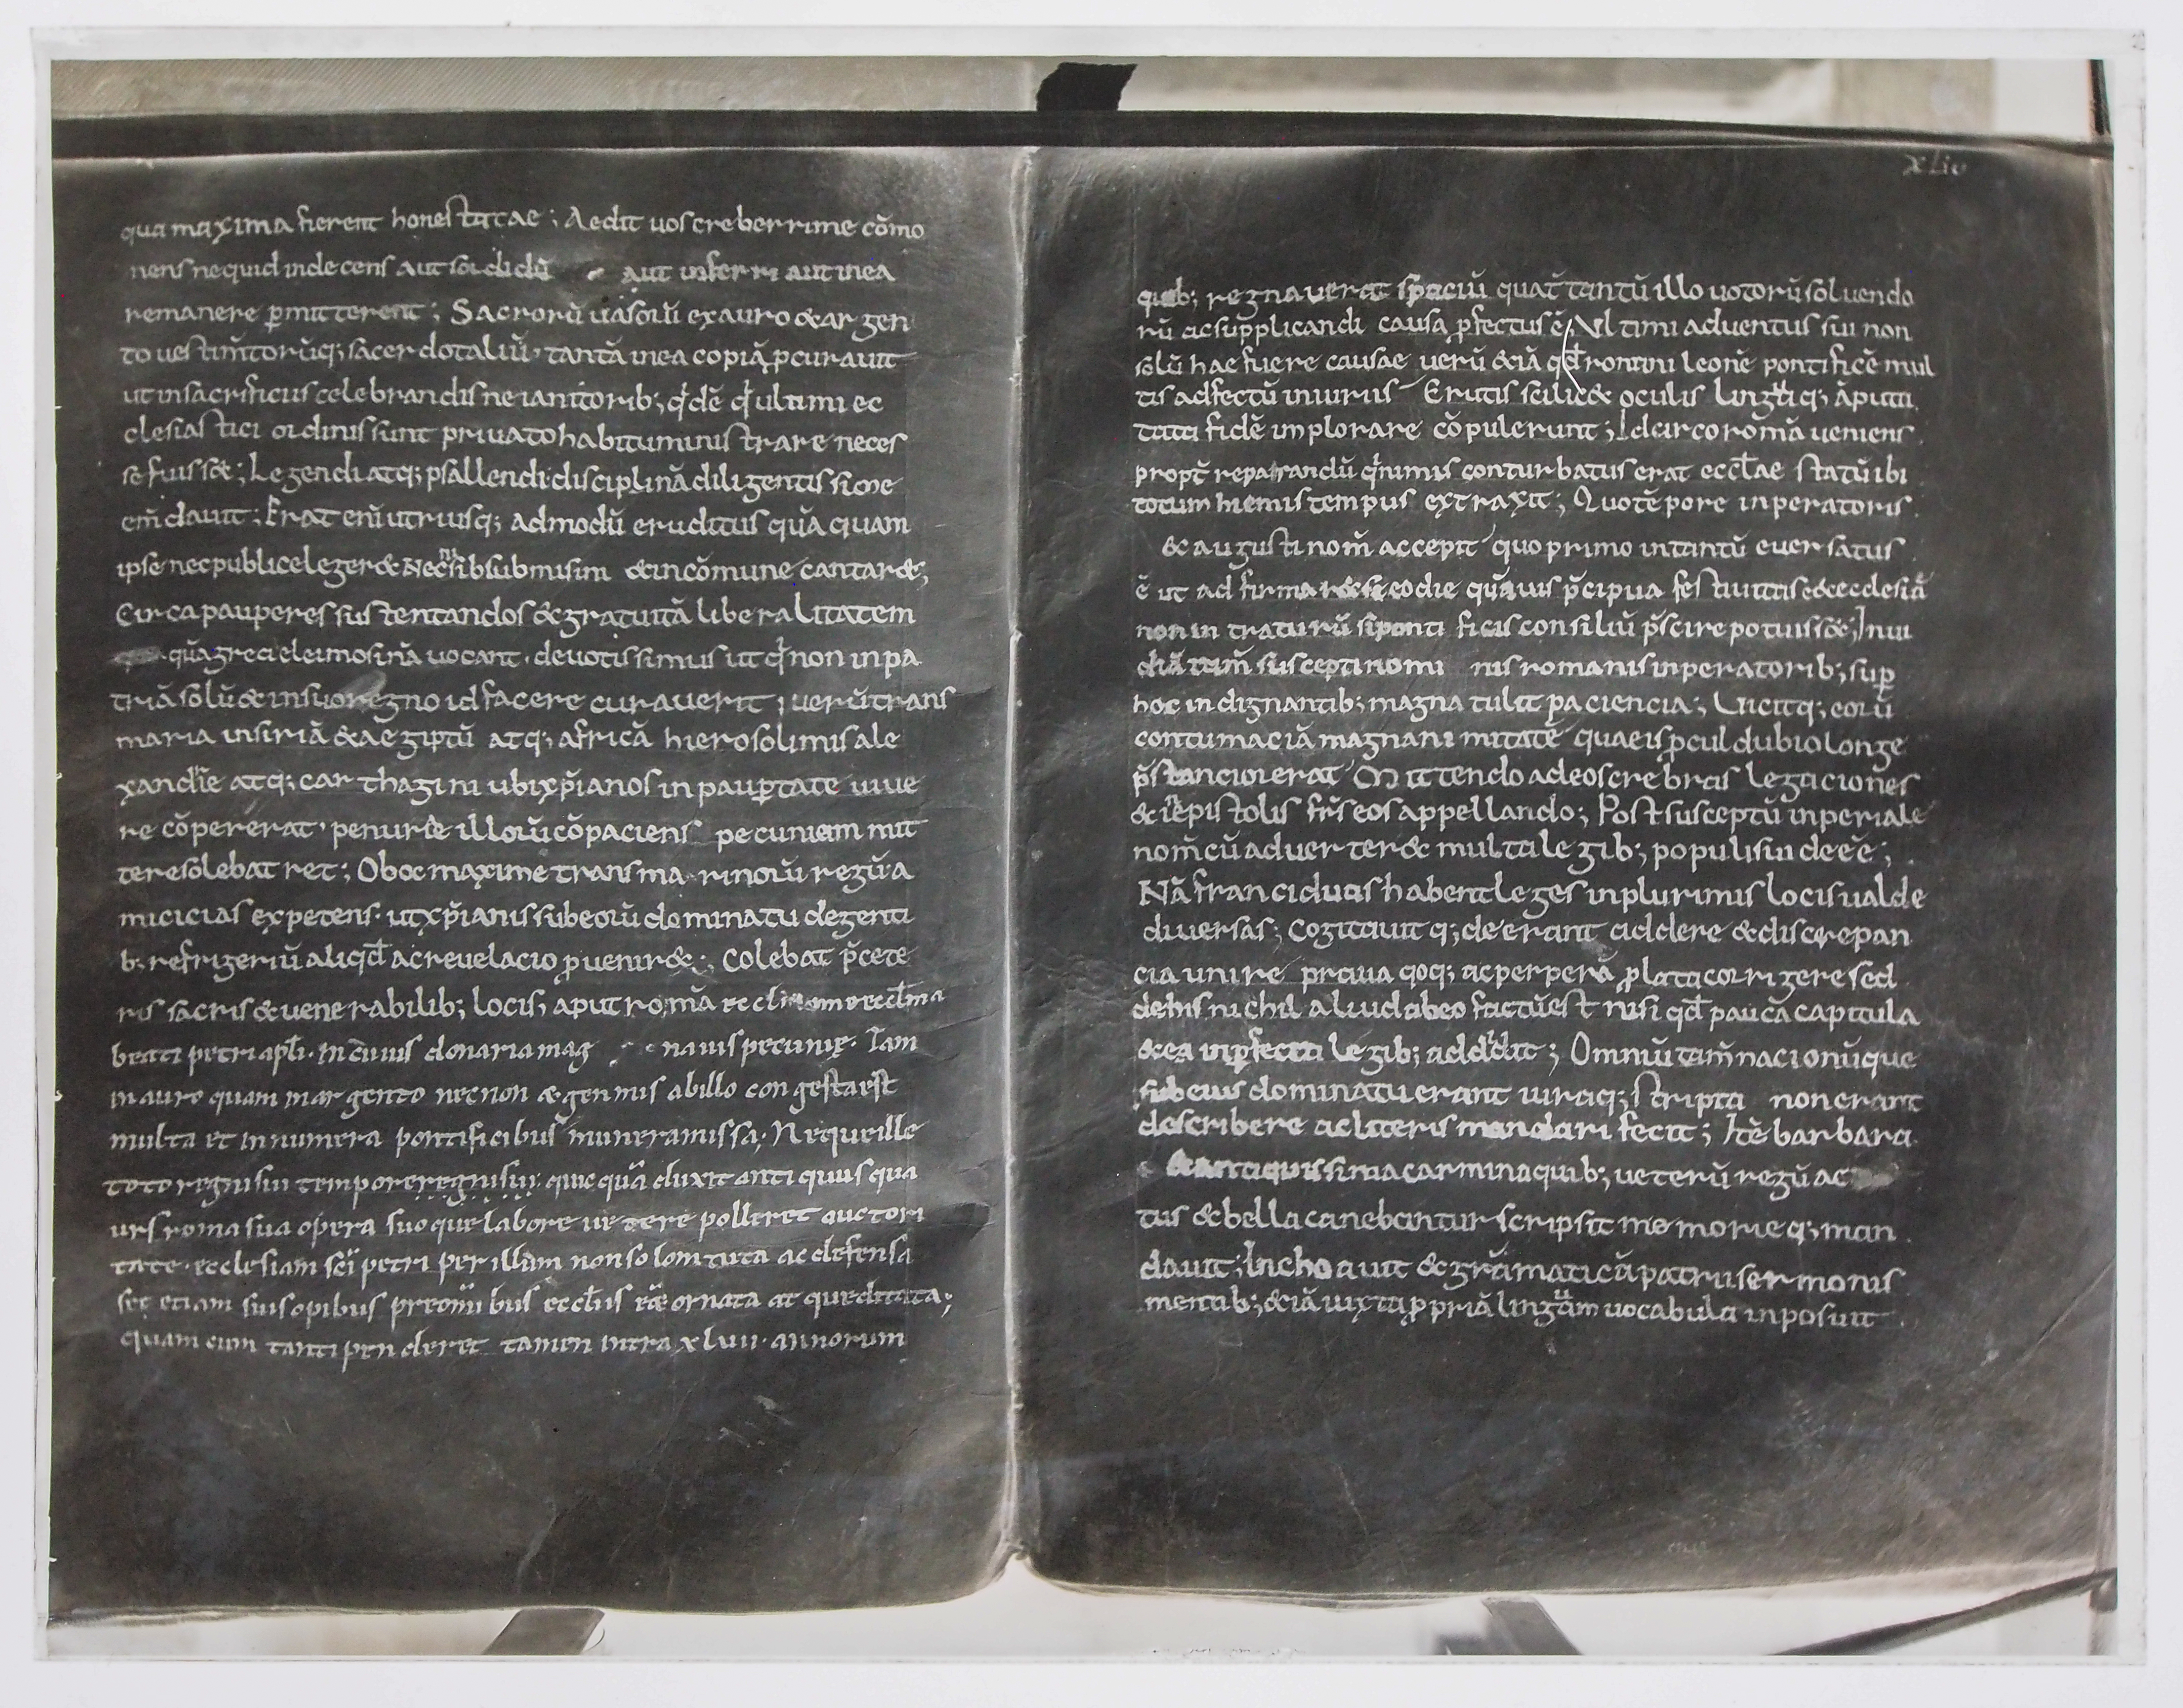 qua maxima fierent honestatae ; Aedit uos creberrime cõmo
nens nequid indecens aut sordidũ aut inferri aut inea
remanere ꝑmitterent ; Sacrorũ uasorũ exauro &argen
to uestim̃torũq; sacerdotaliũ tantã inea copiã ꝓcurauit
ut insacrificiis celebrandis ne ianitorib; q̇dẽ q̇ ultimi ec
clesiastici ordinis sunt priuato habitu ministrare neces
se fuiss&; Legendi atq; psallendi disciplinã diligentissime
em̃dauit ; Erat enĩ utriusq; admodũ eruditus quã quam
ipse nec publice leger& nec nisi submisim &incõmune cantar&;
Circa pauperes sustentandos &gratuitã liberalitatem
quã greci eleimosinã uocant deuotissimus ut q̇ non inpa
triã solũ & insuo regno id facere curauerit ; uerũ trans
maria insiriã &aegiptũ atq; africã hierosolimis ale
xandrie atq; carthagini ubi xp̃ianos in pauꝑtate uiue
re cõpererat penurie illorũ cõpaciens pecuniam mit
tere solebat ret ; Oboc maxime transmarinorũ regũ a
micicias expetens ut xp̃ianis sub eorũ dominatu degenti
b; refrigeriũ aliqd̃ ac reuelacio ꝓuenir&; Colebat p̃cete
ris sacris &uenerabilib; locis, aput romã ecclesiam
beati petri apl̃i. In cuius donaria mag naui s pecuniae. Tam
in auro quam in argento nec non & gemmis abillo congesta est
multa et innumera pontificibus munera missa; Neque ille
toto regni sui tempore regni sui quicquã duxit antiquius qua
urs roma sua opera suoque labore uetere polleret auctori
tate. ecclesiam sc̃i petri per illum non solom tuta ac defensa
set etiam suis opibus preom̃ibus eccl̃iis eẽ ornata at queditata;
quam cum tanti penderet tamen intra xluii. annorum
XLiv
quib; regnauerat spaciũ quat̃ tantũ illo uotorũ soluendo
rũ ac supplicandi causa ꝓfectus ẽ; Ultimi aduentus sui non
solũ hae fuere causae uerũ &iã qd̃ romani leonẽ pontificẽ mul
tis adfectũ iniuriis Erutis scilic& oculis linguaq; ãputa
tata fidẽ implorare cõpulerunt ; Idcirco romã ueniens
propt̃ reparandũ q̇ nimis conturbatus erat eccl̃ae statũ ibi
totum hiemis tempus extraxit ; Quo tẽpore inperatoris
&augusti nom̃ accepit quo primo intantũ euersatus
ẽ ut ad firmar& se eo die quãuis p̃cipua festiuitis e&ecclesiã
non intraturũ si ponti ficis consiliũ p̃scire potuiss&; Inui
diã tam̃ suscepti nomi nis romanis inperatorib; suꝑ
hoc indignantib; magna tulit paciencia; Uicitq; eorũ
contumaciã magnanimitatẽ quaeis ꝓcul dubio longe
p̃stancior erat Mittendo adeos crebras legaciones
& inepistolis fr̃s eos appellando; Post susceptũ inperiale
nom̃ cũ aduerter& multa legib; populi sui deeẽ;
Nã franci duas habent leges inplurimis locis ualde
diuersas; cogitauit q; deerant addere &discrepan
cia unire praua qoq; ac perperã ꝓlata corrigere sed
dehis nichil aliud abeo factũ est nisi qd̃ pauca capitula
&ea inꝑfecta legib; addidit ; Omniũ tam̃ nacionũ que
sub eius dominatu erant iuraq; scripta non erant
describere ac literis mandari fecit ; Itẽ barbara
&antiquissima carmina quib; ueterũ regũ ac
tus &bella canebantur scripsit memorieq; man
dauit ; Inchoauit &grãmaticã patrii sermonis
mentib; &iã iuxta ꝓpriã linguam uocabula inposuit